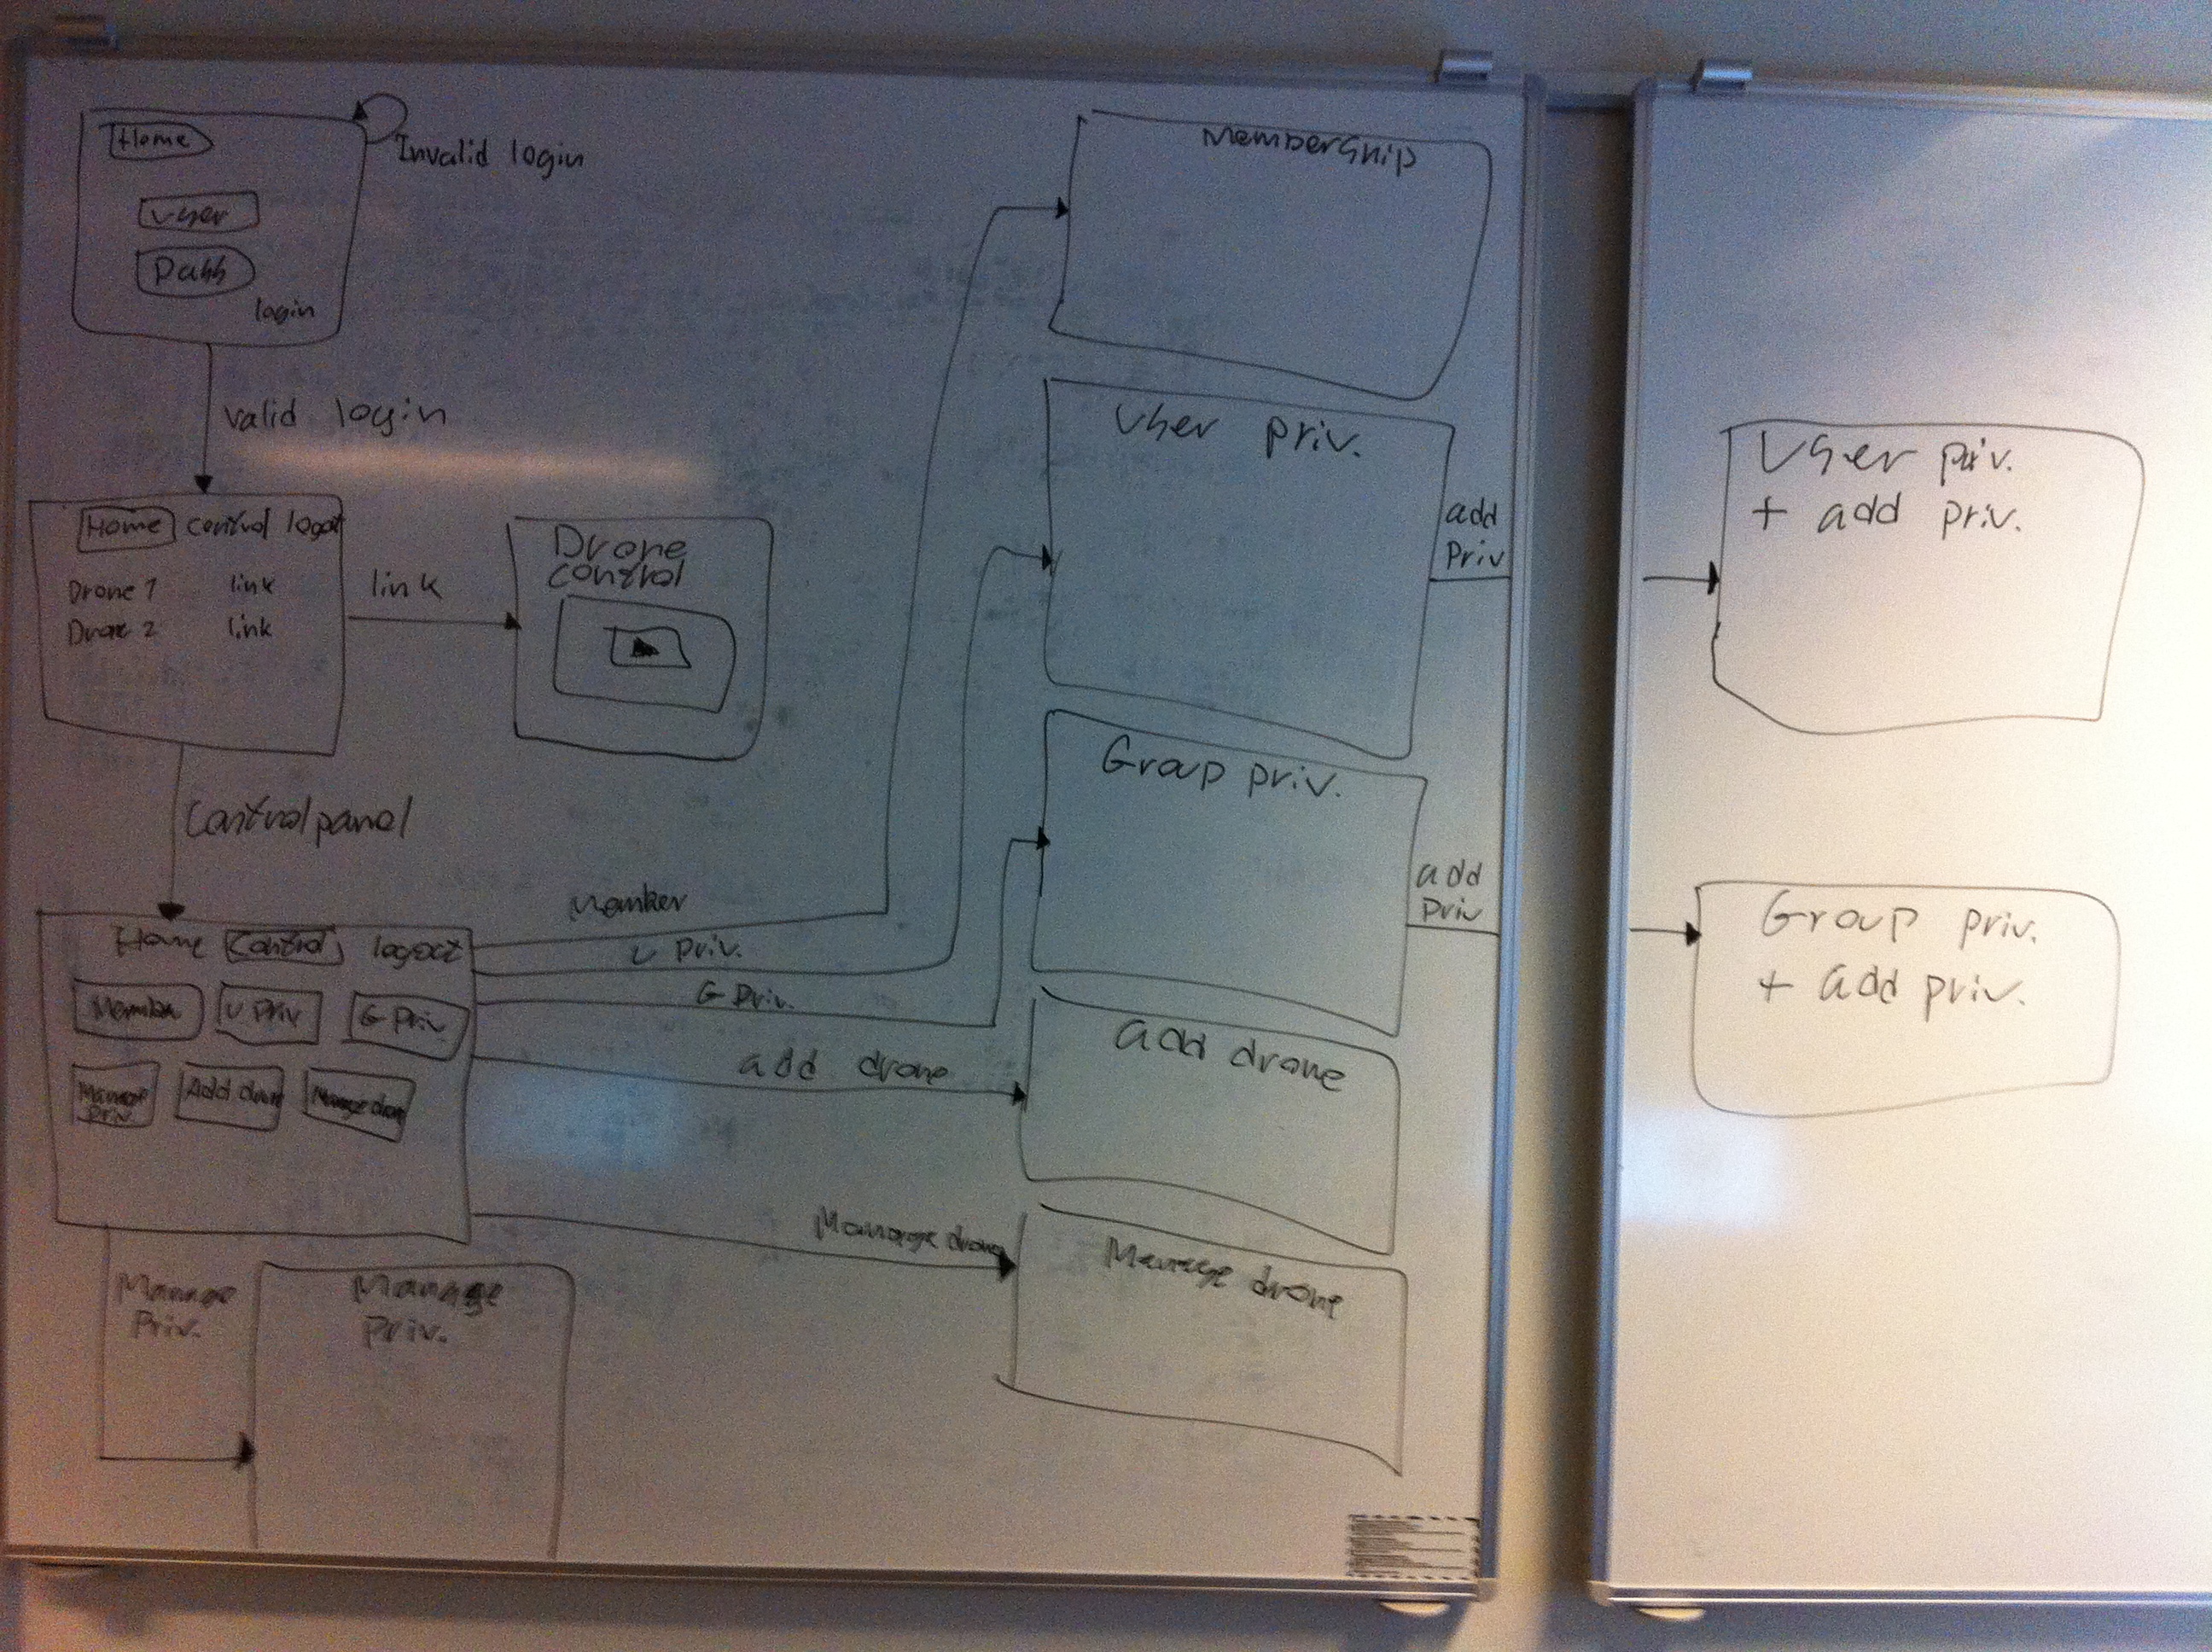 Home
Invalid login
User
Pass
login
valid login
Home control logout
Drone 1 link
Drone 2 link
link
Drone
control
Controlpanel
Home Control logout
Member U Priv G Priv
Manage
priv.
Add drone
Manage drone
Member
U Priv.
G Priv.
add drone
Manage drone
Manage
Priv.
Manage
Priv.
Membership
User priv.
add
Priv
Group priv.
add
Priv
Add drone
Manage drone
User priv.
+ add priv.
Group priv.
+ add priv.